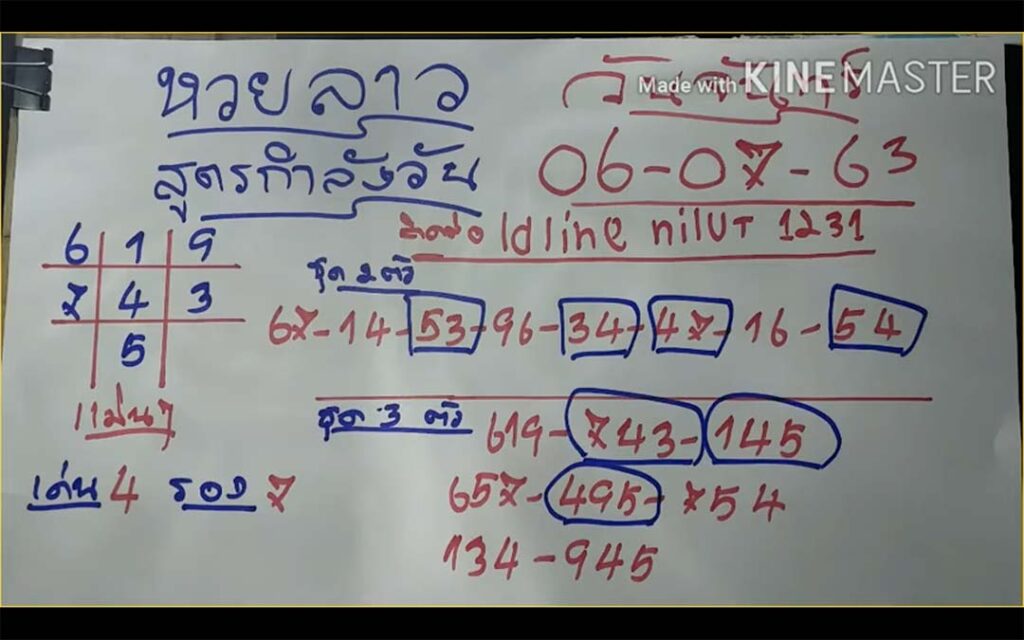 หวยลาว
วันจันทร์
Made with KINEMASTER
สูตรกำลังวัน
06-07-63
ติดต่อ Id line nilUT 1231
6 1 9
7 4 3
5
ชุด 2 ตัว
67-14-53-96-34-47-16-54
แม่นๆ
ชุด 3 ตัว
619-743-145
เด่น 4 รอง 7
657-495-754
134-945